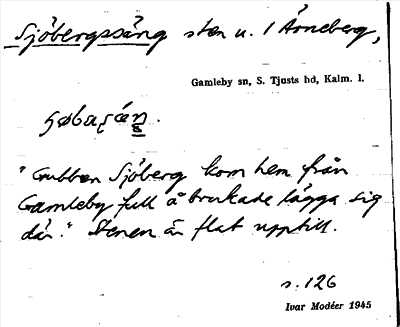 Sjöbergssäng sten u. 1 Årneberg,
Gamleby sn, S. Tjusts hd, Kalm. l.
"Gubben Sjöberg kom hem från
Gamleby full å brukade lägga sig
där." Stenen är flat upptill.
s. 126
Ivar Modéer 1945